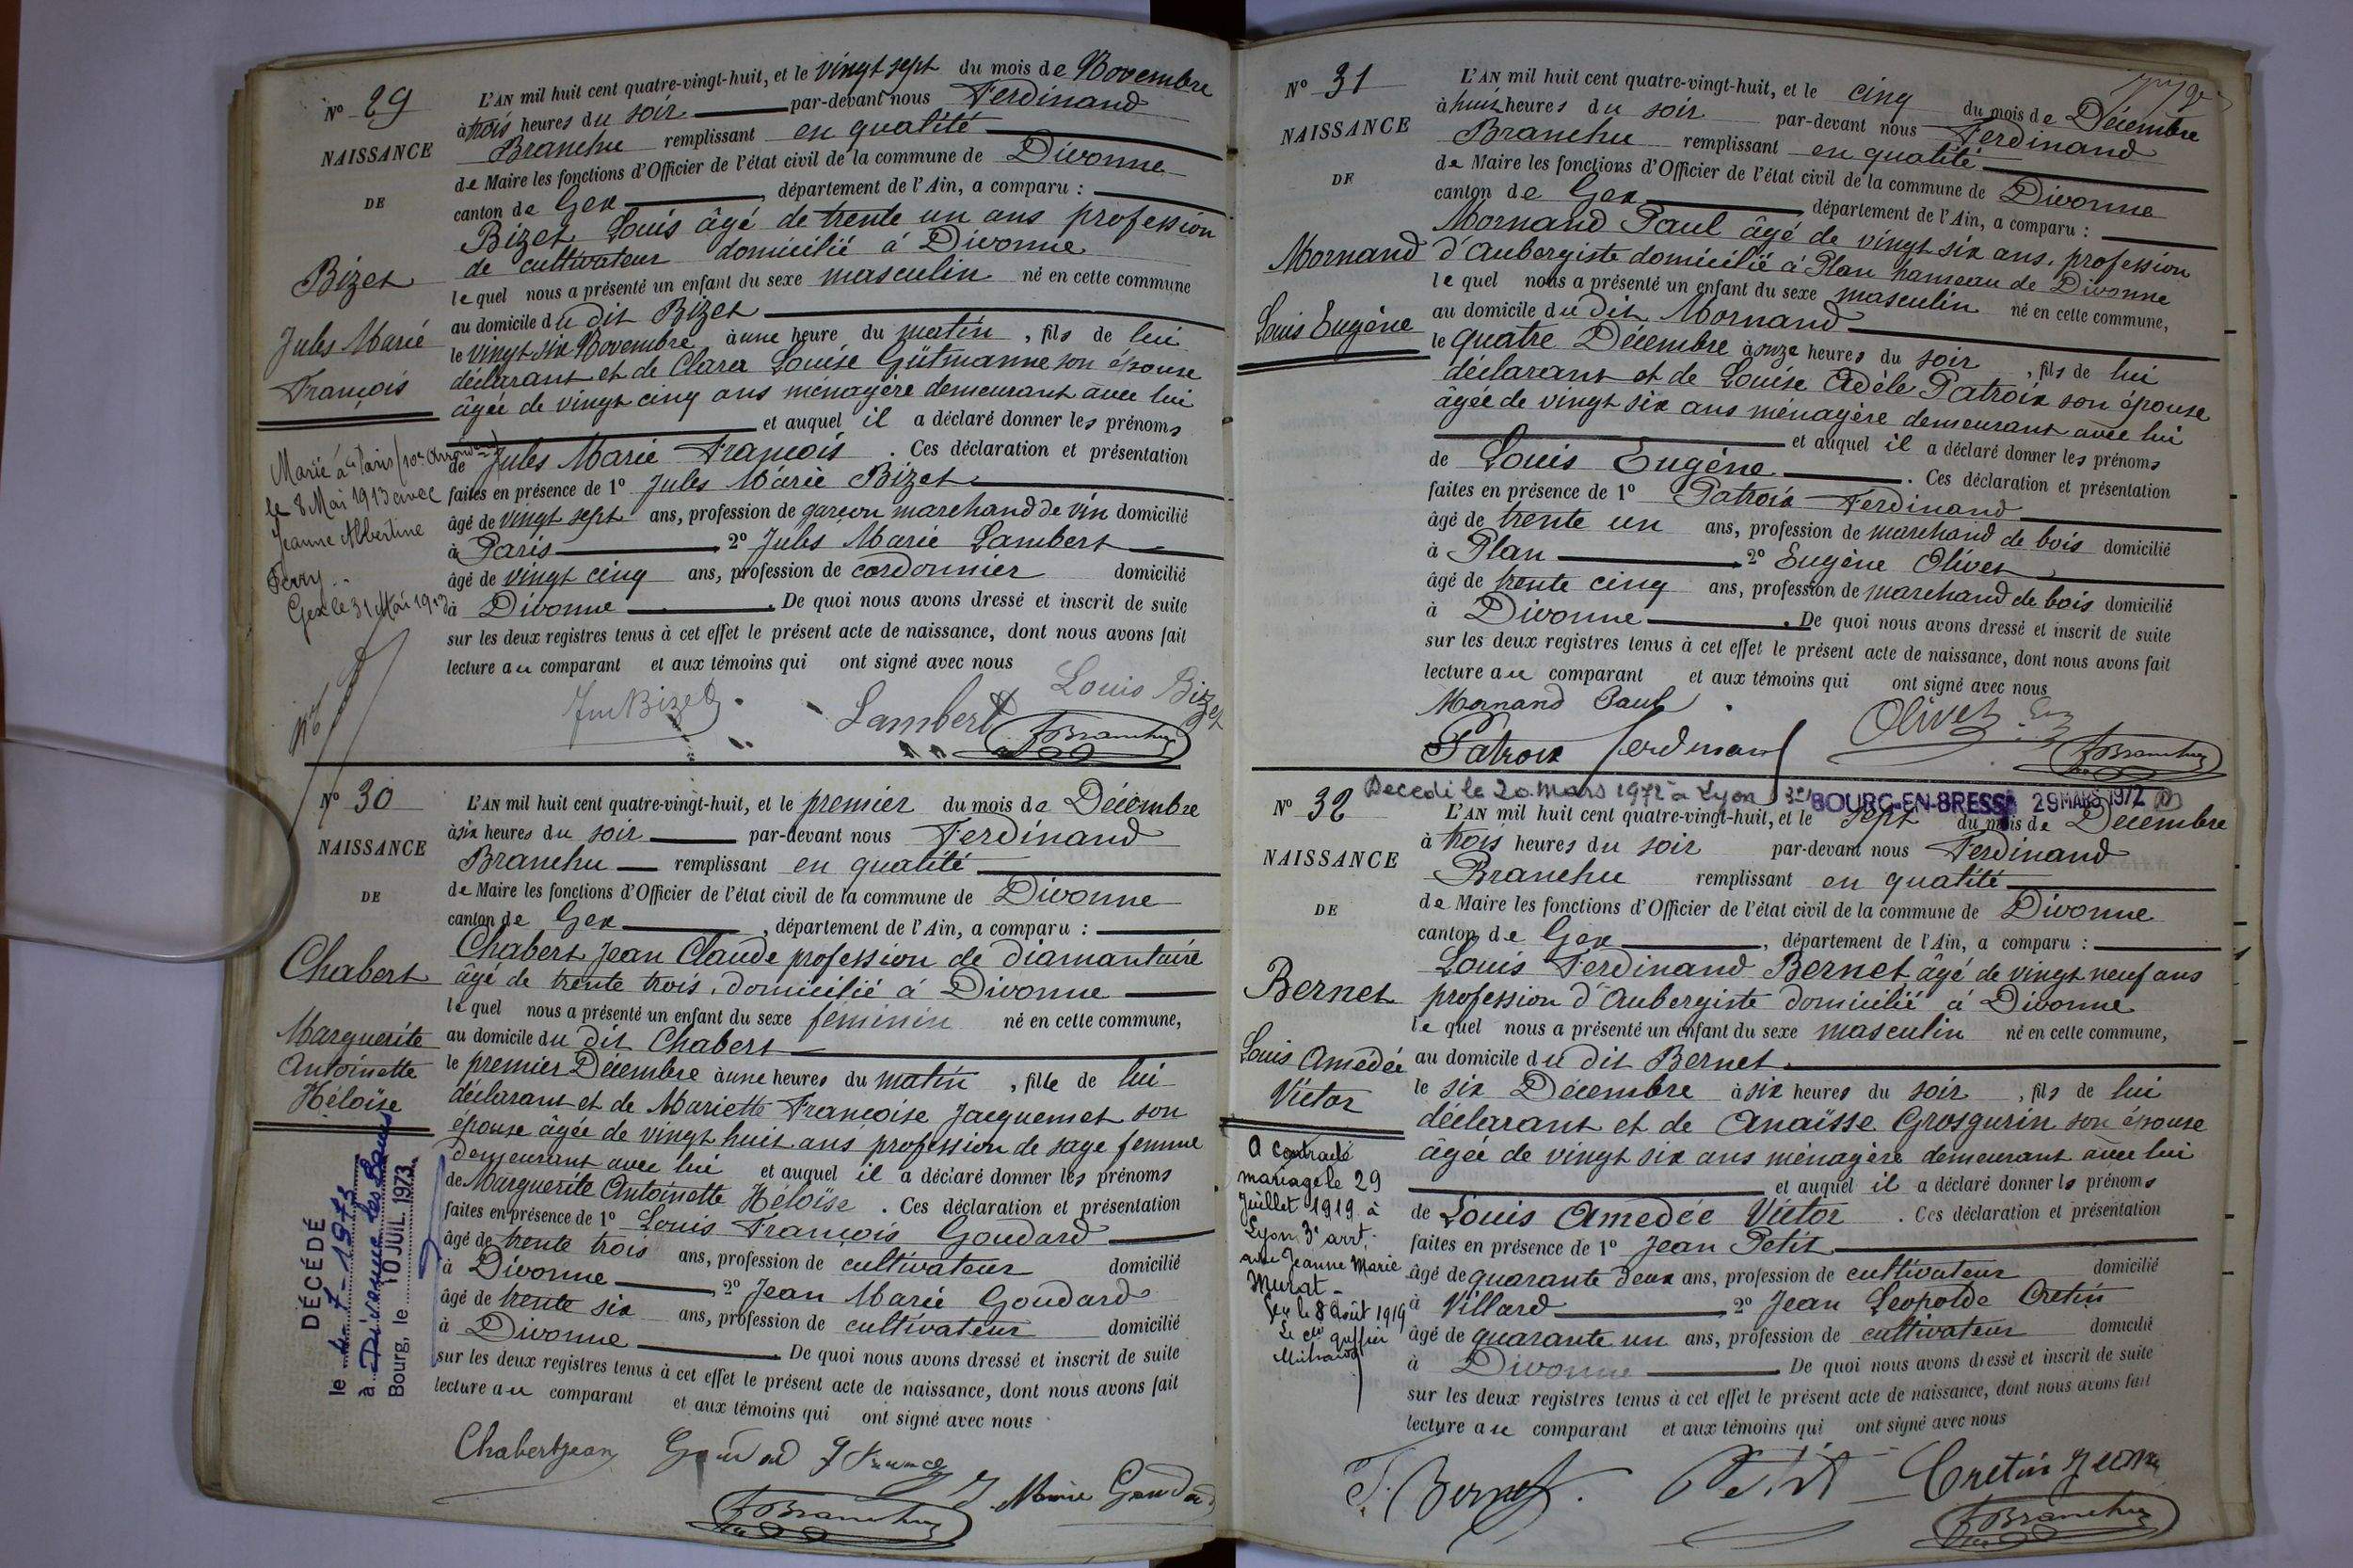 N° 29
NAISSANCE
DE
Bizet
Jules Marie
François
Marié à Paris (10e arrond.)
le 8 Mai 1913 avec
Jeanne Albertine
Gex le 31 Mai 1913
L'AN mil huit cent quatre-vingt-huit, et le vingt sept du mois de Novembre
à trois heures du soir par-devant nous Ferdinand
Branchu remplissant en qualité
de Maire les fonctions d'Officier de l'état civil de la commune de Divonne
canton de Gex, département de l'Ain, a comparu :
Bizet Louis âgé de trente un ans profession
de cultivateur domicilié à Divonne
lequel nous a présenté un enfant du sexe masculin né en cette commune
au domicile du dit Bizet
le vingt six Novembre à une heure du matin, fils de lui
déclarant et de Clara Louise Gütmanne son épouse
âgée de vingt cinq ans ménagère demeurant avec lui
et auquel il a déclaré donner les prénoms
de Jules Marie François. Ces déclaration et présentation
faites en présence de 1° Jules Marie Bizet
âgé de vingt sept ans, profession de garçon marchand de vin domicilié
à Paris 2° Jules Marie Lambert
âgé de vingt cinq ans, profession de cordonnier domicilié
à Divonne. De quoi nous avons dressé et inscrit de suite
sur les deux registres tenus à cet effet le présent acte de naissance, dont nous avons fait
lecture au comparant et aux témoins qui ont signé avec nous
Jm Bizet Lambert Louis Bizet
F Branchu
N° 30
NAISSANCE
DE
Chabert
Marguerite
Antoinette
Héloïse
DÉCÉDÉ
le 4-7-1973
à Divonne les Bains
Bourg, le 10 JUIL. 1973
L'AN mil huit cent quatre-vingt-huit, et le premier du mois de Décembre
à six heures du soir par-devant nous Ferdinand
Branchu remplissant en qualité
de Maire les fonctions d'Officier de l'état civil de la commune de Divonne
canton de Gex, département de l'Ain, a comparu :
Chabert Jean Claude profession de diamantaire
âgé de trente trois. domicilié à Divonne
lequel nous a présenté un enfant du sexe féminin né en cette commune,
au domicile du dit Chabert
le premier Décembre à une heures du matin, fille de lui
déclarant et de Mariette Françoise Jacquemet son
épouse âgée de vingt huit ans profession de sage femme
demeurant avec lui et auquel il a déclaré donner les prénoms
de Marguerite Antoinette Héloïse. Ces déclaration et présentation
faites en présence de 1° Louis François Goudard
âgé de trente trois ans, profession de cultivateur domicilié
à Divonne 2° Jean Marie Goudard
âgé de trente six ans, profession de cultivateur domicilié
à Divonne. De quoi nous avons dressé et inscrit de suite
sur les deux registres tenus à cet effet le présent acte de naissance, dont nous avons fait
lecture au comparant et aux témoins qui ont signé avec nous
Chabert Jean
F Branchu
N° 31
NAISSANCE
DE
Mornand
Louis Eugène
L'AN mil huit cent quatre-vingt-huit, et le cinq du mois de Décembre
à huit heures du soir par-devant nous Ferdinand
Branchu remplissant en qualité
de Maire les fonctions d'Officier de l'état civil de la commune de Divonne
canton de Gex, département de l'Ain, a comparu :
Mornand Paul âgé de vingt six ans, profession
d'Aubergiste domicilié à Plan hameau de Divonne
lequel nous a présenté un enfant du sexe masculin né en cette commune,
au domicile du dit Mornand
le quatre Décembre à onze heures du soir, fils de lui
déclarant et de Louise Adèle Patroix son épouse
âgée de vingt six ans ménagère demeurant avec lui
et auquel il a déclaré donner les prénoms
de Louis Eugène. Ces déclaration et présentation
faites en présence de 1° Patroix Ferdinand
âgé de trente un ans, profession de marchand de bois domicilié
à Plan 2° Eugène Olivet
âgé de trente cinq ans, profession de marchand de bois domicilié
à Divonne. De quoi nous avons dressé et inscrit de suite
sur les deux registres tenus à cet effet le présent acte de naissance, dont nous avons fait
lecture au comparant et aux témoins qui ont signé avec nous
Mornand Paul Olivet
Patroix Ferdinand F Branchu
Décédé le 20 Mars 1972 à Lyon 3e BOURG-EN-BRESSE 29 MARS 1972
N° 32
NAISSANCE
DE
Bernet
Louis Amédée
Victor
A contracté
mariage le 29
Juillet 1919 à
Lyon 3e arrt.
avec Jeanne Marie
Murat -
Gex le 8 Août 1919
Le
L'AN mil huit cent quatre-vingt-huit, et le sept du mois de Décembre
à trois heures du soir par-devant nous Ferdinand
Branchu remplissant en qualité
de Maire les fonctions d'Officier de l'état civil de la commune de Divonne
canton de Gex, département de l'Ain, a comparu :
Louis Ferdinand Bernet âgé de vingt neuf ans
profession d'Aubergiste domicilié à Divonne
lequel nous a présenté un enfant du sexe masculin né en cette commune,
au domicile du dit Bernet
le six Décembre à six heures du soir, fils de lui
déclarant et de Anaïsse Grosgurin son épouse
âgée de vingt six ans ménagère demeurant avec lui
et auquel il a déclaré donner ls prénoms
de Louis Amédée Victor. Ces déclaration et présentation
faites en présence de 1° Jean Petit
âgé de quarante deux ans, profession de cultivateur domicilié
à Villard 2° Jean Léopolde Cretin
âgé de quarante un ans, profession de cultivateur domicilié
à Divonne De quoi nous avons dressé et inscrit de suite
sur les deux registres tenus à cet effet le présent acte de naissance, dont nous avons fait
lecture au comparant et aux témoins qui ont signé avec nous
F. Bernet. Petit Cretin
F Branchu